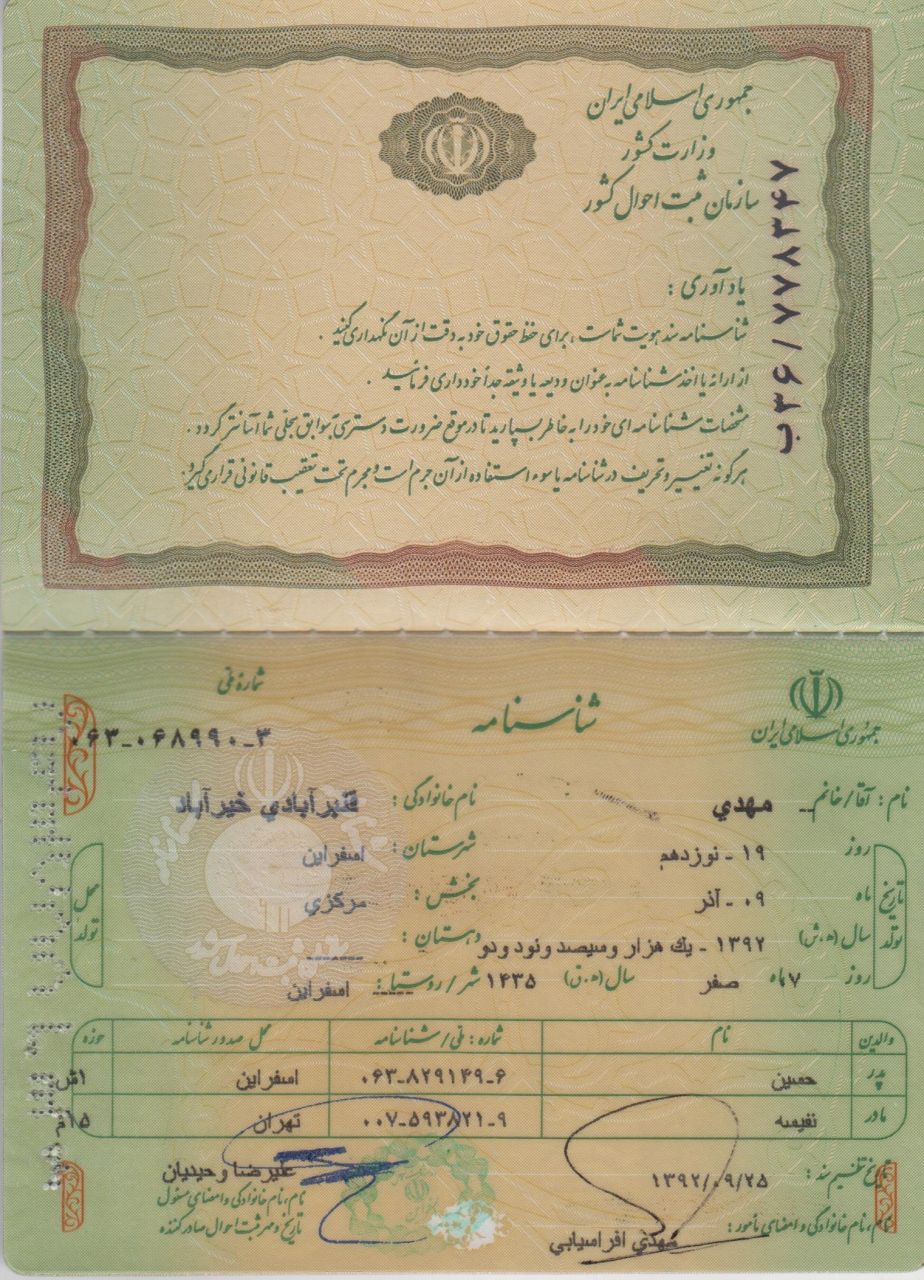 جمهوری اسلامی ایران
وزارت کشور
سازمان ثبت احوال کشور
ب۲۶/۷۷۸۳۴۷
یادآوری :
شناسنامه سند هویت شماست ، برای حفظ حقوق خود به دقت از آن نگهداری کنید .
از ارائه یا اخذ شناسنامه به عنوان ودیعه یا وثیقه جداً خودداری فرمائید .
مشخصات شناسنامه ای خود را به خاطر بسپارید تا در موقع ضرورت دسترسی به سوابق سجلی شما آسانتر گردد .
هرگونه تغییر و تحریف در شناسنامه یا سوء استفاده از آن جرم است و مجرم تحت تعقیب قانونی قرار می گیرد.
جمهوری اسلامی ایران
شناسنامه
شمارۀ ملی
۰۶۳-۰۶۸۹۹۰-۳
نام : آقا/خانم مهدي نام خانوادگی : قنبرآبادي خیرآباد
تاریخ تولد
روز ۱۹ - نوزدهم
ماه ۰۹ - آذر
سال (ه.ش) ۱۳۹۲ - یك هزار وسیصد ونود ودو
روز ۷ ماه صفر سال (ه.ق) ۱۴۳۵
محل تولد
شهرستان : اسفراین
بخش : مرکزي
دهستان : -------
شهر/روستا : ----- اسفراین
والدین نام شماره : ملی/شناسنامه محل صدور شناسنامه حوزه
پدر حسین ۰۶۳-۸۲۹۱۴۹-۶ اسفراین ۱ش
مادر نفیسه ۰۰۷-۵۹۳۸۲۱-۹ تهران ۱۵م
تاریخ تنظیم سند : ۱۳۹۲/۰۹/۲۵
نام ، نام خانوادگی و امضای مأمور : مهدي افراسیابي
علیرضا وحیدیان
نام، نام خانوادگی و امضای مسئول
تاریخ و مهر ثبت احوال صادر کننده